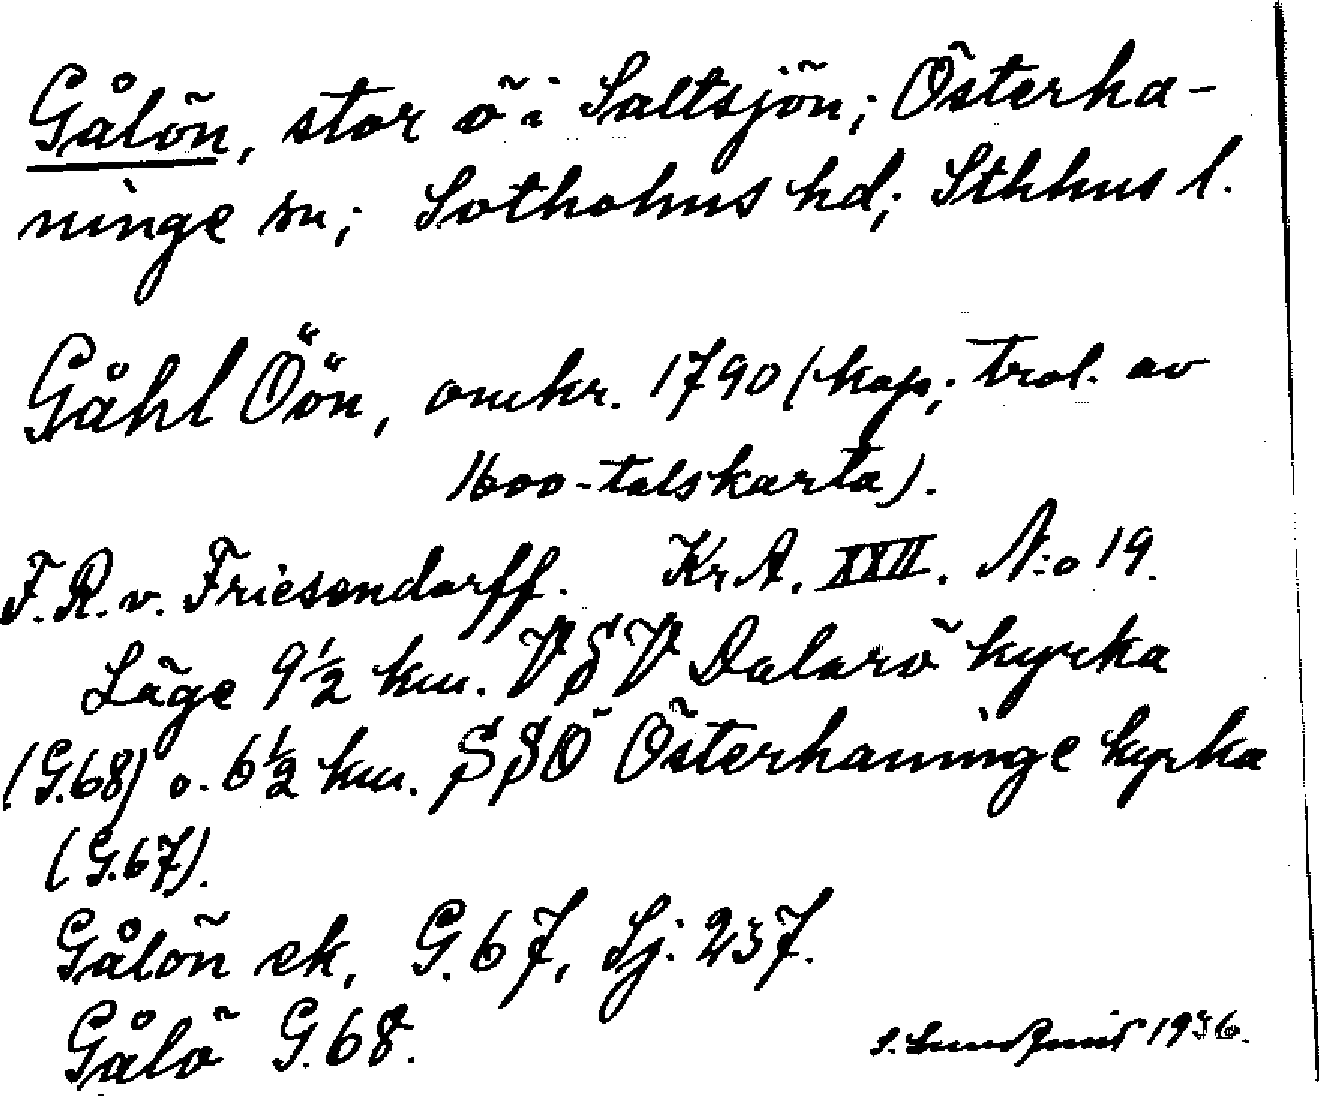 Gålön, stor ö i Saltsjön; Österha-
ninge sn; Sotholms hd; Sthlms l.
Gåhl Öön, omkr. 1790 (kop; trol. av
1600-talskarta).
F. R. v. Friesendorff. Kr.A. XXII. N:o 19.
Läge 9½ km. VSV Dalarö kyrka
(G.68) o. 6½ km. SSÖ Österhaninge kyrka
(G.67).
Gålön ek, G.67, Sj. 237.
Gålö G.68.
S. Lundqvist 1936.